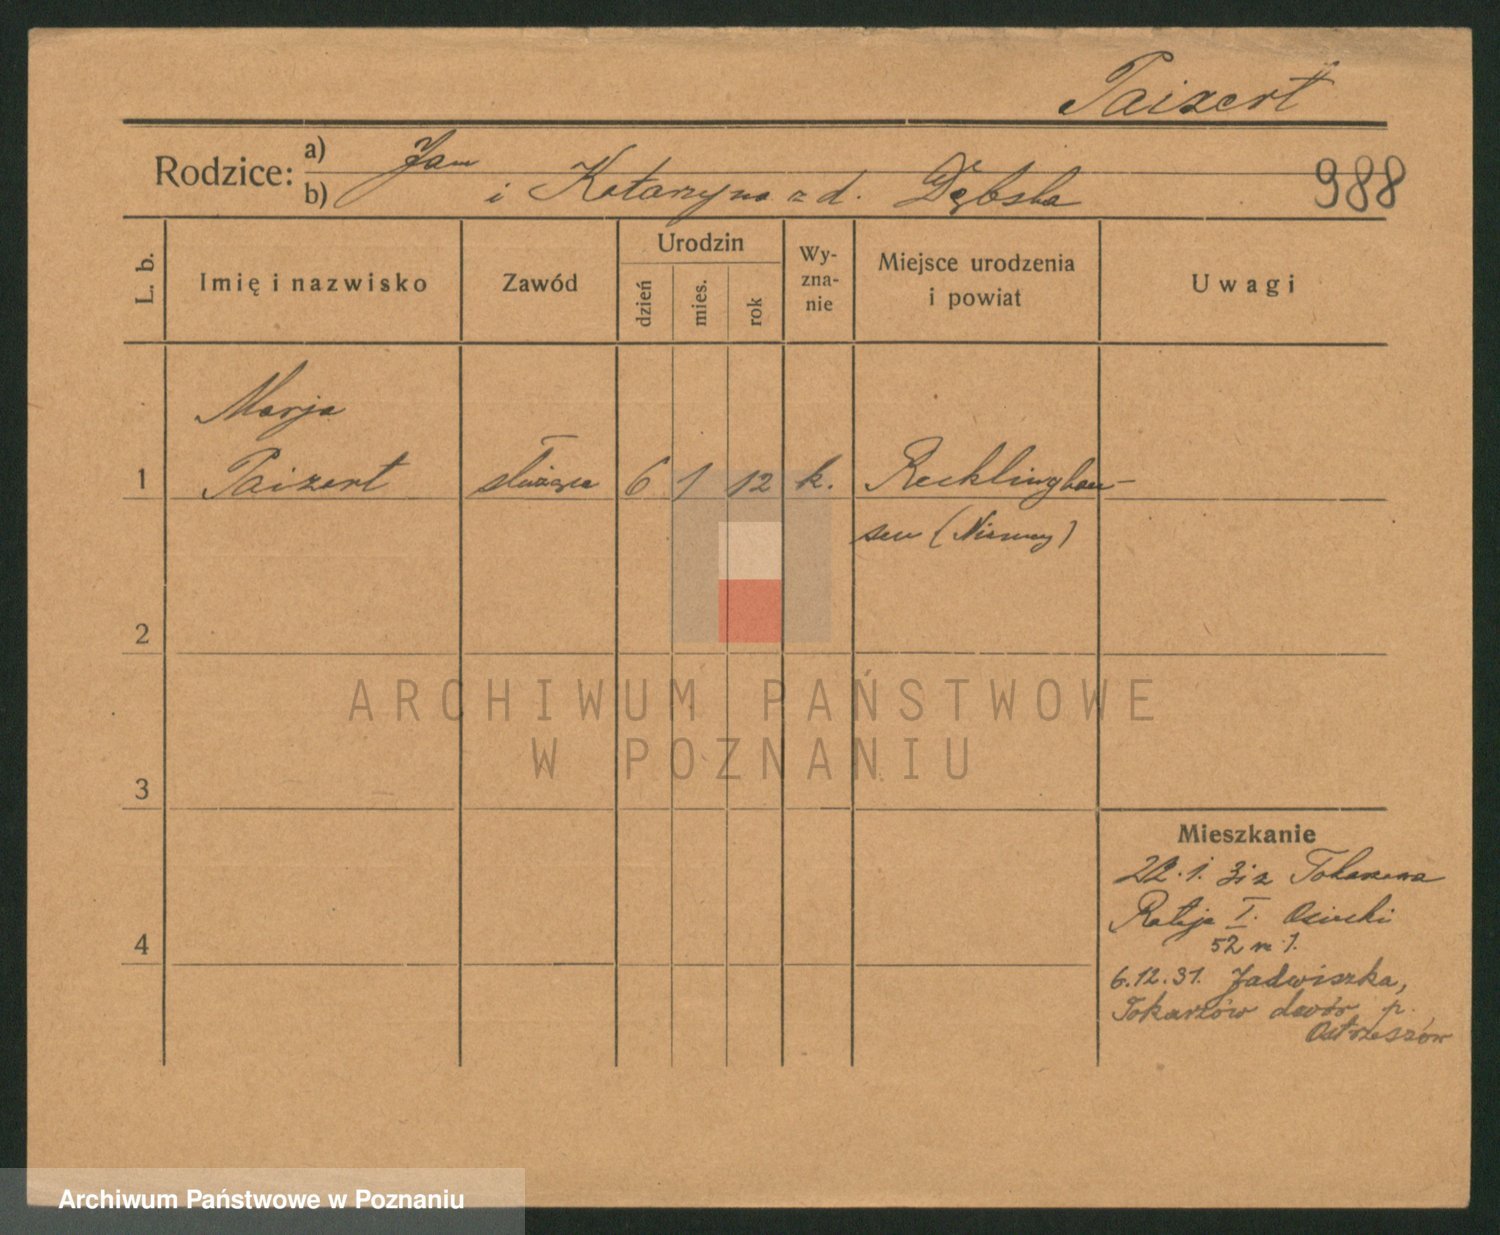 Paizert
Rodzice: a) Jan
b) i Katarzyna z d. Dębska
988
L. b.
Imię i nazwisko
Zawód
Urodzin
dzień
mies.
rok
Wy-
zna-
nie
Miejsce urodzenia
i powiat
Uwagi
Marja
1 Paizert służąca 6 1 12 k. Recklinghau-
sen (Niemcy)
2
ARCHIWUM PAŃSTWOWE
W POZNANIU
3
Mieszkanie
22.1. 31 z
I.
4
52 m 1.
6.12.31. Jadwiszka,
Tokarzów dwór p.
Ostrzeszów
Archiwum Państwowe w Poznaniu